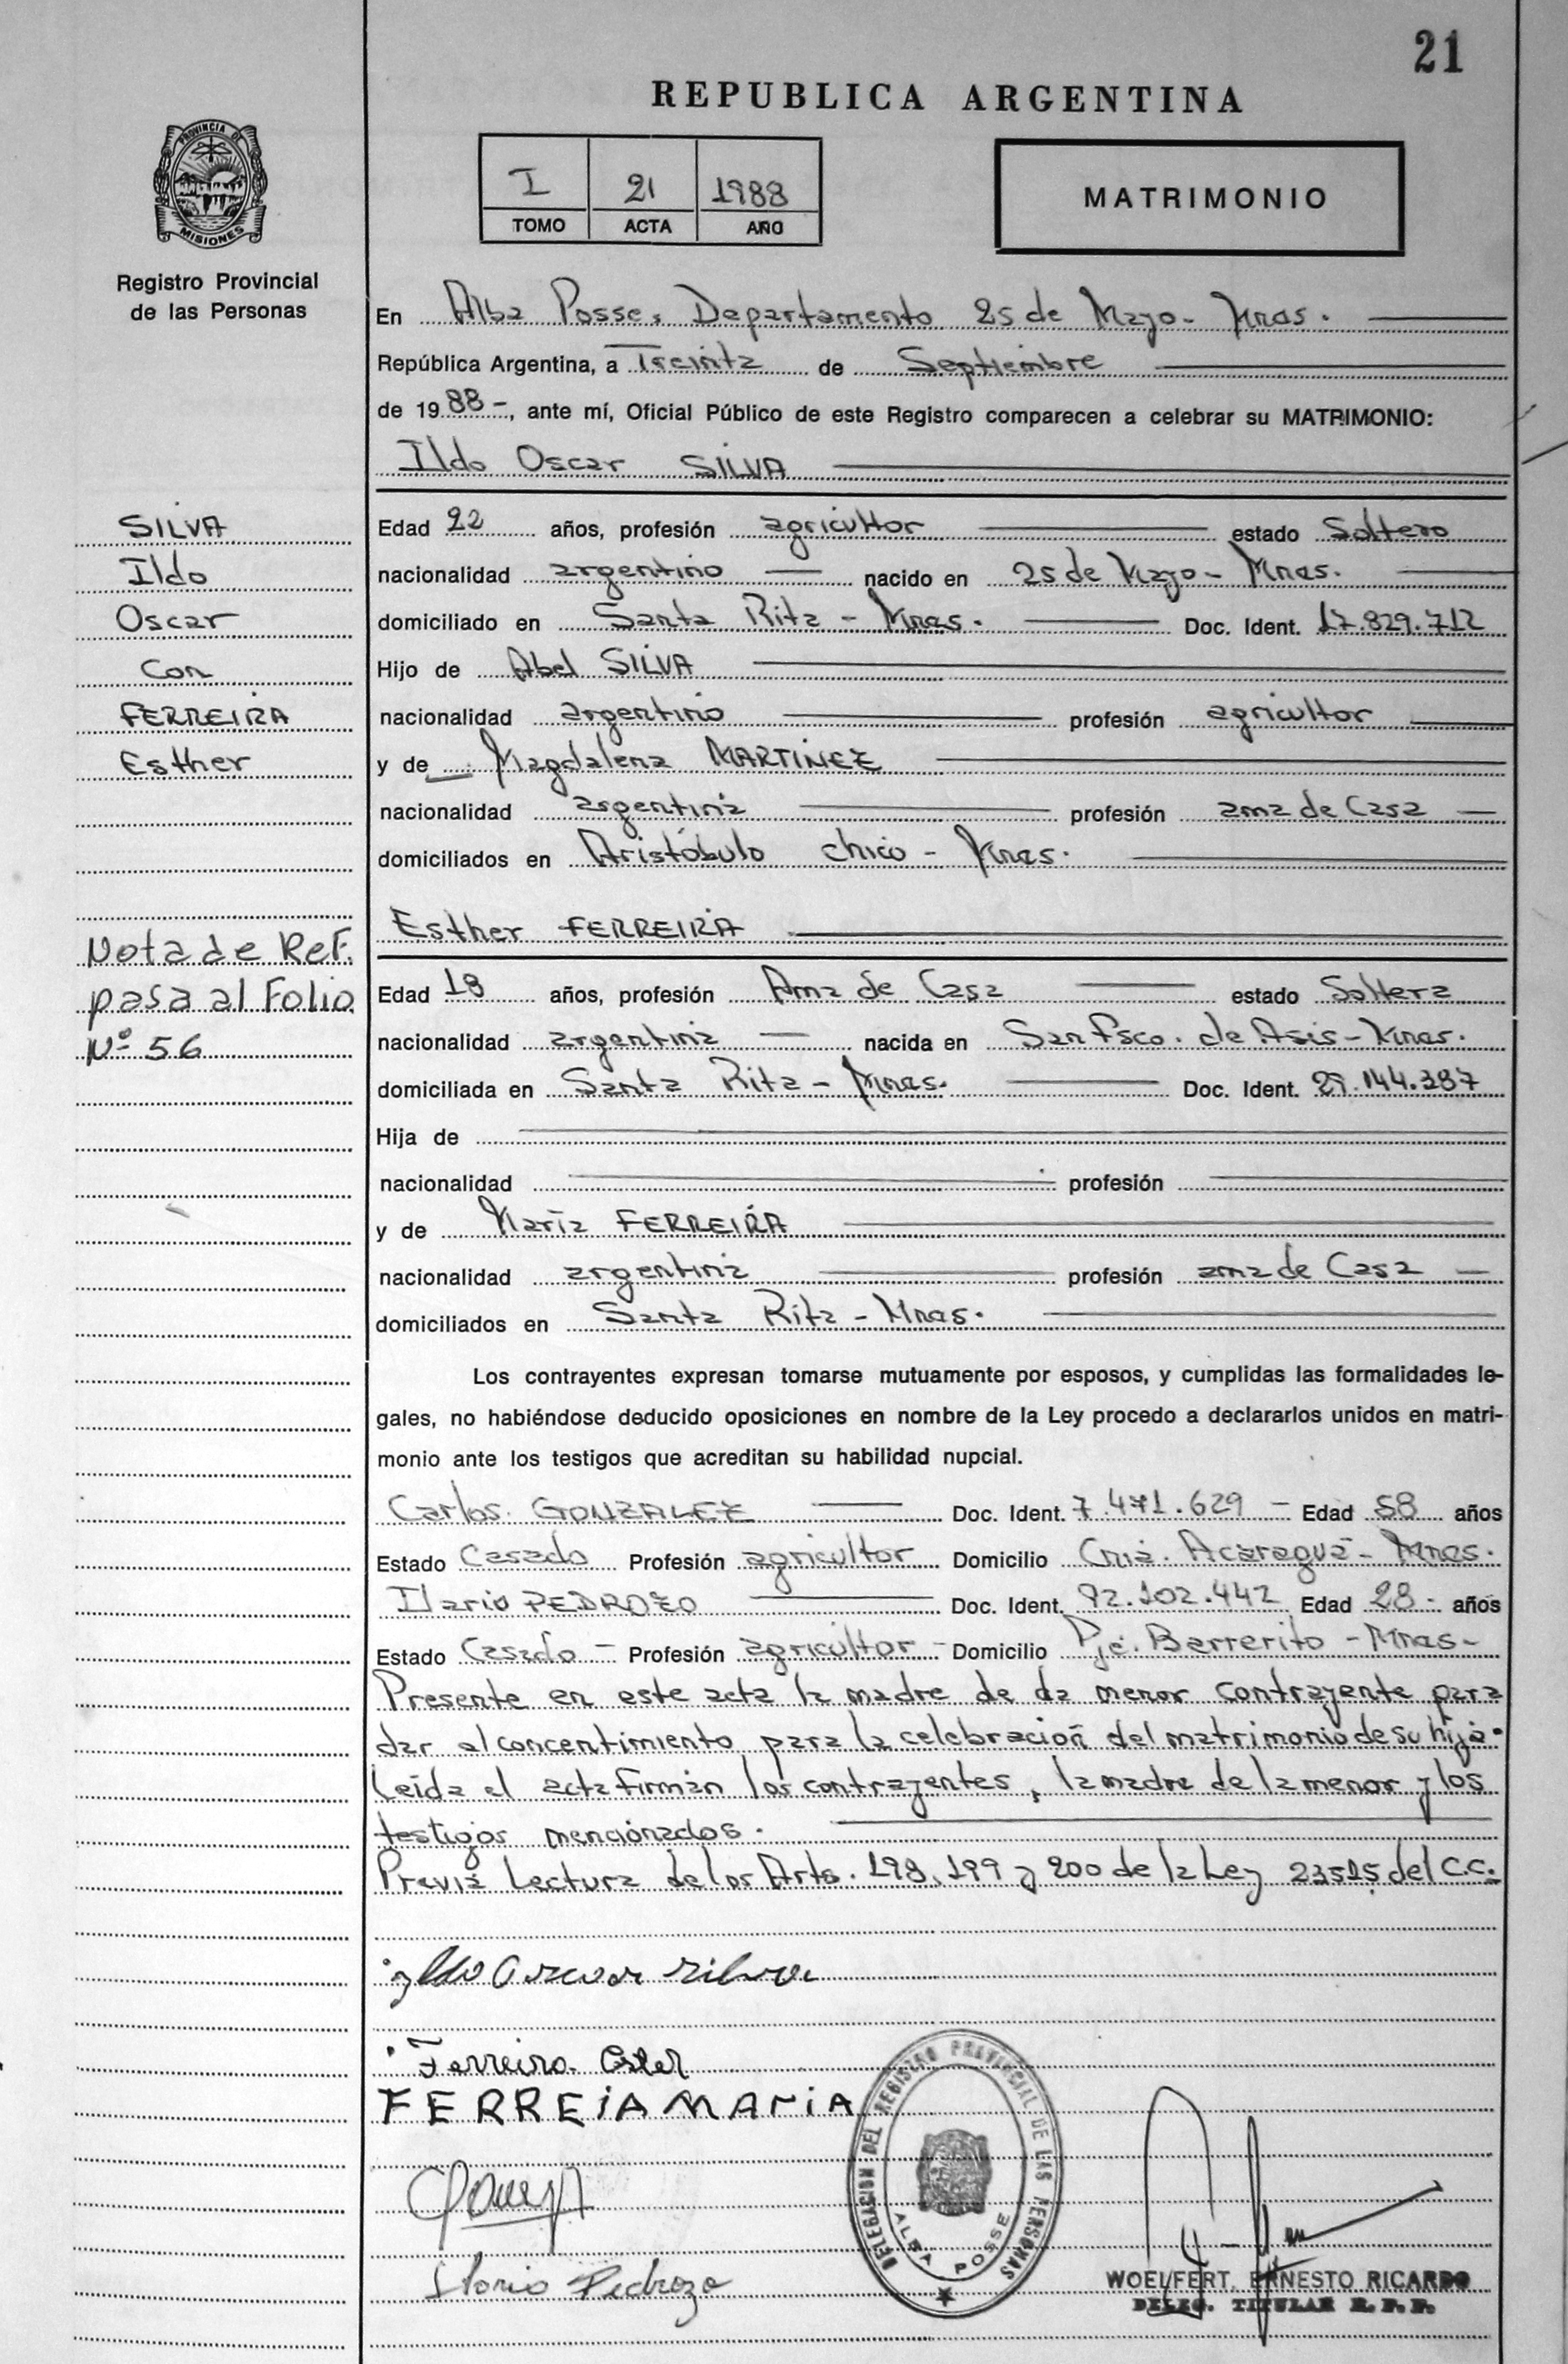 21
REPUBLICA ARGENTINA
PROVINCIA DE
MISIONES
Registro Provincial
de las Personas
I 21 1988
TOMO ACTA AÑO
MATRIMONIO
En Alba Posse, Departamento 25 de Mayo - Mnas.
República Argentina, a Treinta de Septiembre
de 1988-, ante mí, Oficial Público de este Registro comparecen a celebrar su MATRIMONIO:
Ildo Oscar SILVA
SILVA
Ildo
Oscar
Con
FERREIRA
Esther
Edad 22 años, profesión agricultor estado Soltero
nacionalidad argentino nacido en 25 de Mayo - Mnas.
domiciliado en Santa Rita - Mnas. Doc. Ident. 17.829.712
Hijo de Abel SILVA
nacionalidad argentino profesión agricultor
y de Magdalena MARTINEZ
nacionalidad argentina profesión ama de Casa
domiciliados en Aristóbulo chico - Mnas.
Esther FERREIRA
Nota de Ref.
pasa al Folio
Nº 56
Edad 18 años, profesión Ama de Casa estado Soltera
nacionalidad argentina nacida en San Fsco. de Asis - Mnas.
domiciliada en Santa Rita - Mnas. Doc. Ident.
Hija de
nacionalidad profesión
y de María FERREIRA
nacionalidad argentina profesión ama de Casa
domiciliados en Santa Rita - Mnas.
Los contrayentes expresan tomarse mutuamente por esposos, y cumplidas las formalidades le-
gales, no habiéndose deducido oposiciones en nombre de la Ley procedo a declararlos unidos en matri-
monio ante los testigos que acreditan su habilidad nupcial.
Carlos GONZALEZ Doc. Ident. 7.471.629 - Edad 58 años
Estado Casado Profesión agricultor Domicilio Cnia. Acaraguá - Mnas.
Ilario PEDROZO Doc. Ident. 92.102.442 Edad 28- años
Estado Casado - Profesión agricultor - Domicilio Pje. Barrerito - Mnas-
Presente en este acta la madre de da menor contrayente para
dar el concentimiento para la celebración del matrimonio de su hija.
Leída el acta firman los contrayentes, la madre de la menor y los
testigos mencionados.
Previa Lectura de los Arts. 198, 199 y 200 de la Ley 23515 del C.C.
Ildo Oscar Silva
Ferreira Ester
FERREiA MARiA
Ilario Pedrozo
DELEGACION DEL REGISTRO PROVINCIAL DE LAS PERSONAS
ALBA POSSE
WOELFERT, ERNESTO RICARDO
DELEG. TITULAR R. P. P.